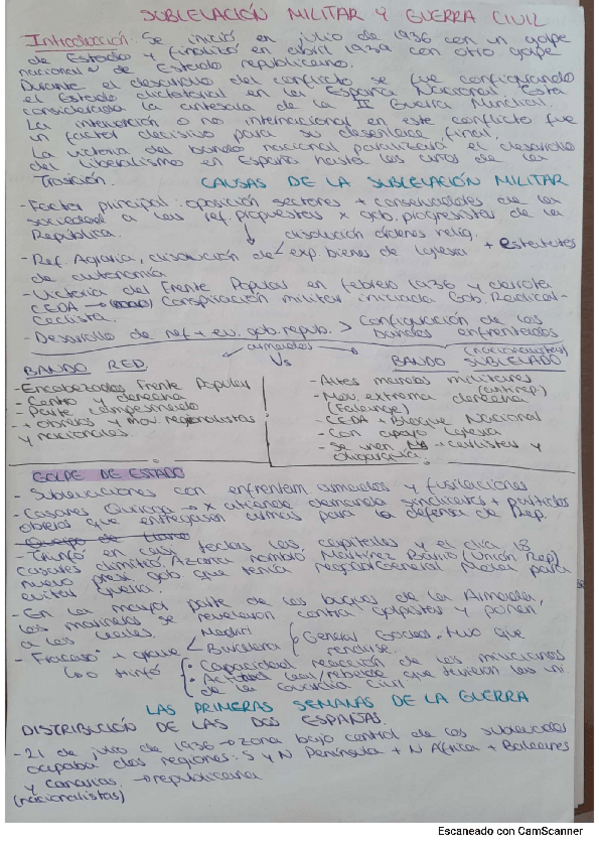 SUBLELACIÓN MILITAR Y GUERRA CIVIL
Introducción: Se inició en julio de 1936 con un golpe
de Estado y finalizó en abril 1939 con otro golpe
nacional de Estado republicano.
Durante el desarrollo del conflicto se fue configurando
el Estado dictatorial en la España Nacional. Esta
considerada la antesala de la II Guerra Mundial.
La intervención o no internacional en este conflicto fue
un factor decisivo para su desenlace final.
La victoria del bando nacional paralizará el desarrollo
del liberalismo en España hasta los años de la
Trasición.
CAUSAS DE LA SUBLELACIÓN MILITAR
- Factor principal: oposición sectores + conservadores de la
sociedad a las ref. propuestas x gob. progresistas de la
República.
disolución órdenes relig.
- Ref. Agraria, disolución de exp. bienes de Iglesia + estatutos
de autonomía
- Victoria del Frente Popular en febrero 1936 y derrota
CEDA → Conspiración militar iniciada Gob. Radical-
Cedista.
- Desarrollo de ref + ev. gob. repub. > Configuración de los
bandos enfrentados
armados
BANDO REP. Vs BANDO SUBLELADO (nacionalistas)
- Encabezados Frente Popular
- Centro y derecha
- Parte campesinado
- + obreros y mov. regionalistas
y nacionales.
- Altos mandos militares
(antirep)
- Mov. extrema derecha
(Falange)
- CEDA + Bloque Nacional
- Con apoyo Iglesia
- Se unen carlistas y
oligarquía.
GOLPE DE ESTADO
- Sublevaciones con enfrentam. armados y fusilaciones
- Casares Quiroga → x atiende demanda sindicatos + partidos
obreros que entregasen armas para la defensa de Rep.
- Triunfó en casi todas las capitales y el día 18
Casares dimitió. Azaña nombró Martínez Barrio (Unión Rep)
nuevo presi. gob que tenía negociar General Mola para
evitar guerra.
- En la mayor parte de los buques de la Armada,
los marineros se revelaron contra golpistas y ponen
a los leales.
- Fracaso + grave Madrid
Barcelona General Goded tuvo que
rendirse.
• Capacidad reacción de las milicianos
• Actitud leal/rebelde que tuvieron las uni
de la Guardia Civil
LAS PRIMERAS SEMANAS DE LA GUERRA
DISTRIBUCIÓN DE LAS DOS ESPAÑAS.
- 21 de julio de 1936 → zona bajo control de los sublevados
ocupaba dos regiones: S y N Península + N África + Baleares
y Canarias. → republicana
(nacionalistas)
Escaneado con CamScanner